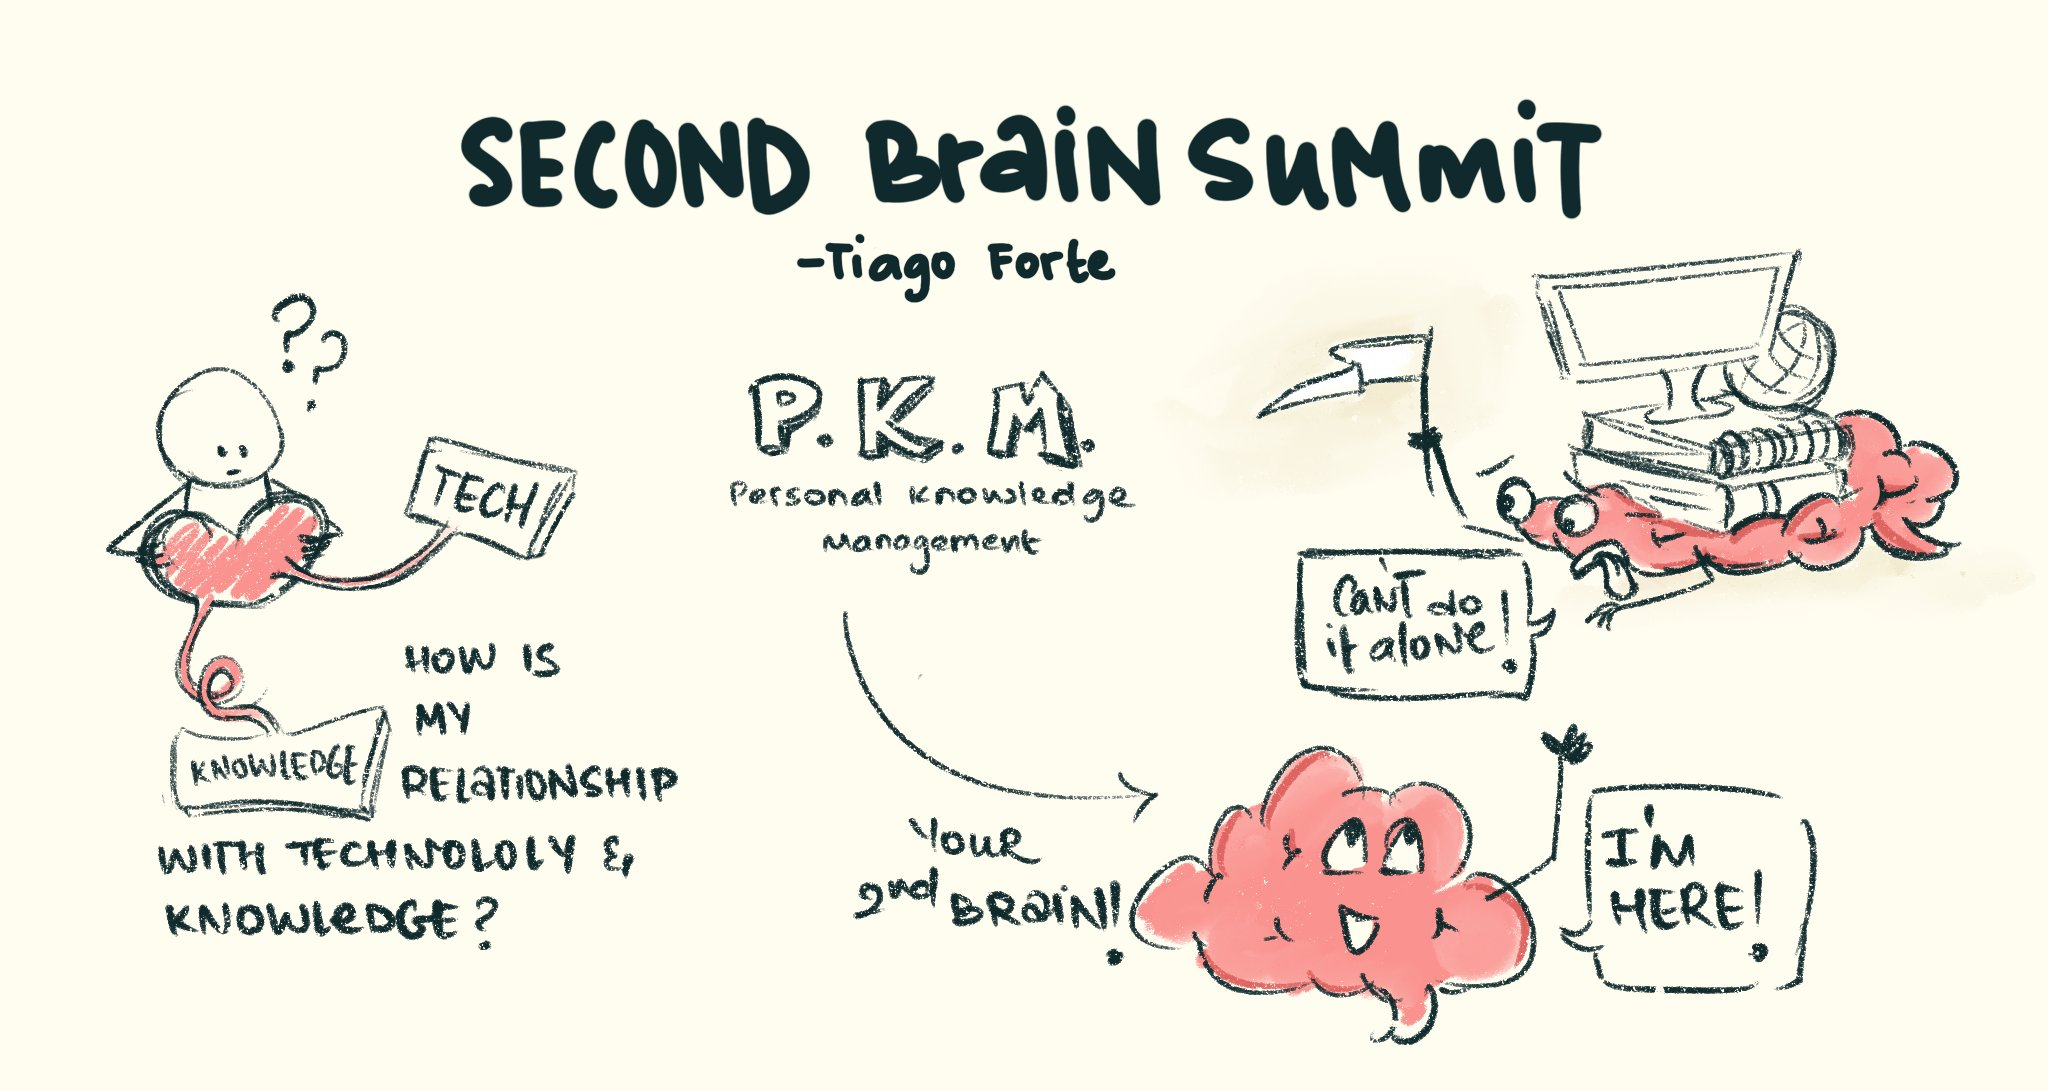 SECOND BraiN SuMmiT
-Tiago Forte
??
TECH
KNOWLEDGE
HOW IS
MY
RELaTiONSHIP
WITH TECHNOLOLY &
KNOWLeDGE?
P.K.M.
Personal Knowledge
Management
Your
2nd BRaiN!
CaN'T do
it aloNe!
I'M
HERE!